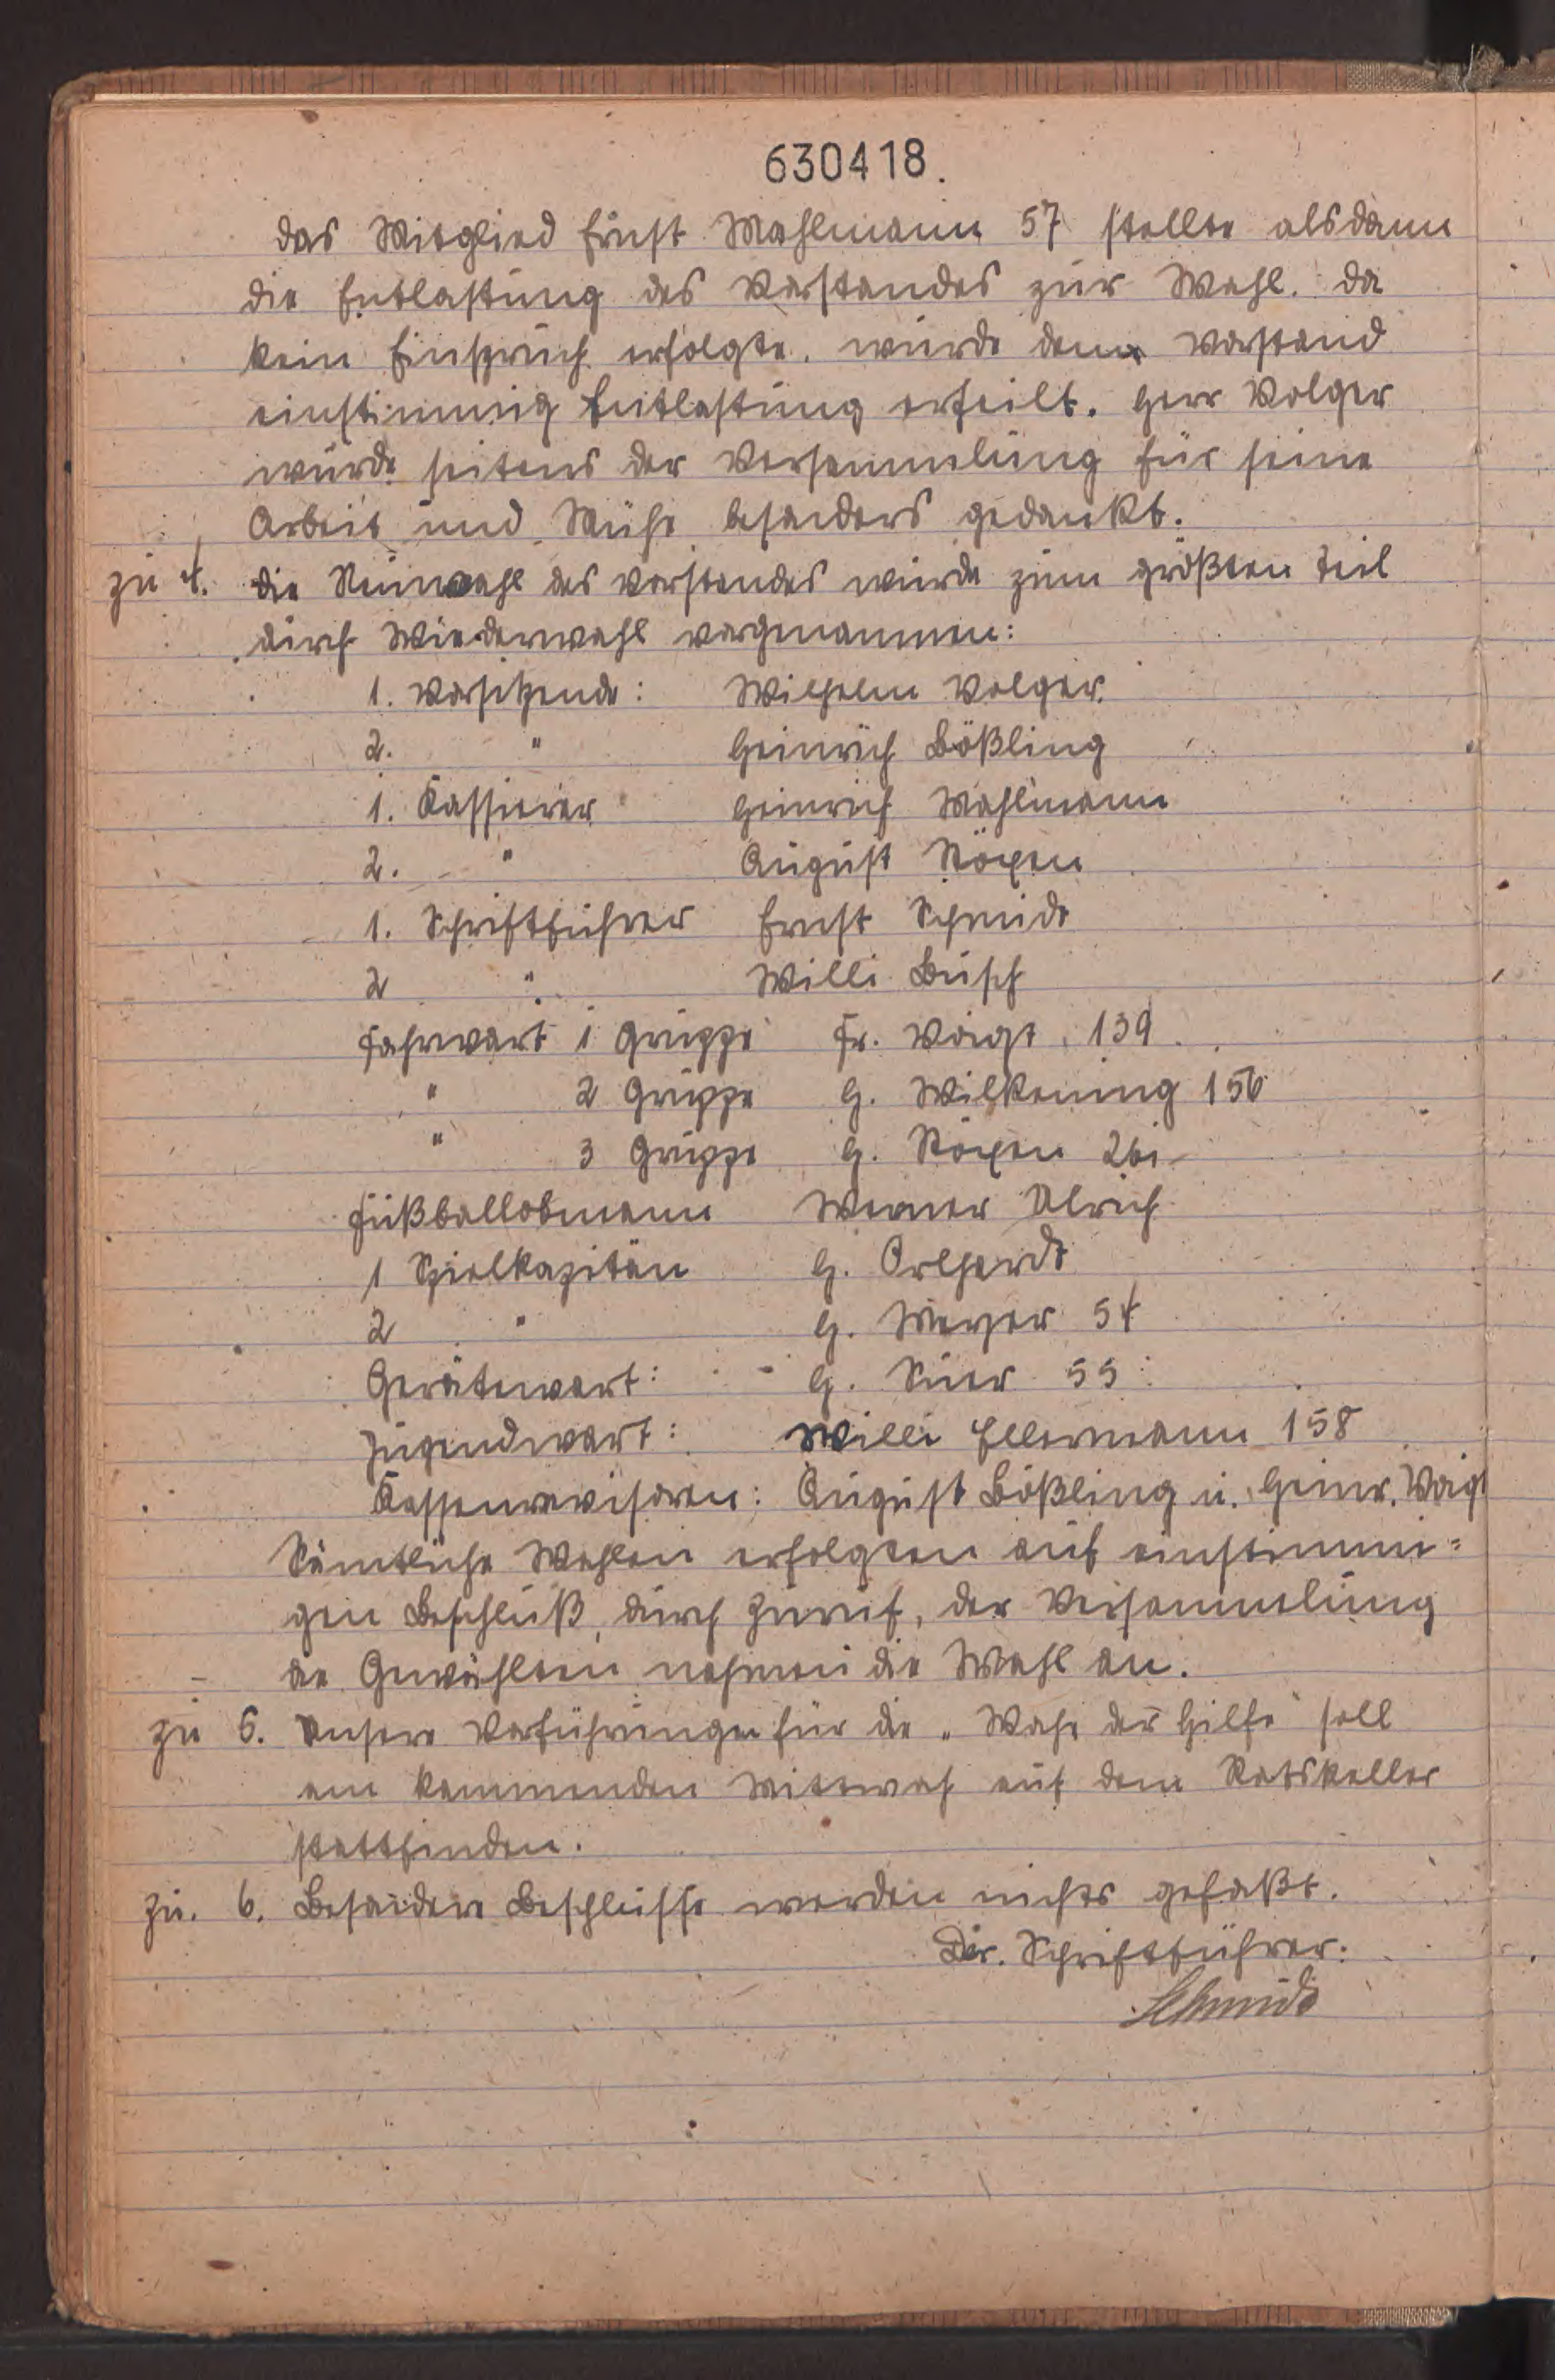 630418.
das Mitglied Ernst Mahlmann 57 stellte alsdann
die Entlastung des Vorstandes zur Wahl. da
kein Einspruch erfolgte. wurde dem Vorstand
einstimmig Entlastung erteilt. Herr Volger
wurde seitens der Versammlung für seine
Arbeit und Mühe besonders gedankt.
zu 4. die Neuwahl des Vorstandes wurde zum größten teil
durch Wiederwahl vorgenommen:
1. Vorsitzende: Wilhelm Volger.
2. " Heinrich Bößling
1. Kassierer Heinrich Mahlmann
2. " August Röxen
1. Schriftführer Ernst Schmidt
2 " Willi Busch
Fahrwart 1 Gruppe Fr. Voigt 139
" 2 Gruppe H. Wilkening 156
" 3 Gruppe H. Röxen 261
Fußballobmann Werner Ulrich
1 Spielkapitän H.
2 " H. Meyer 54
Gerätewart: H. Suer 55
Jugendwart: Willi Ellermann 158
Kassenrevisoren: August Bößling u. Heinr. Voigt
Sämtliche Wahlen erfolgten auf einstimmi=
gen Beschluß, durch Zuruf, der Versammlung
de Gewählten nahmen die Wahl an.
zu 5. Unsere Vorführungen für die "Wache der Hilfe" soll
am kommenden Mittwoch auf dem Ratskeller
stattfinden.
zu. 6. Besondere Beschlüsse werden nichts gefaßt.
Der. Schriftführer.
Schmidt